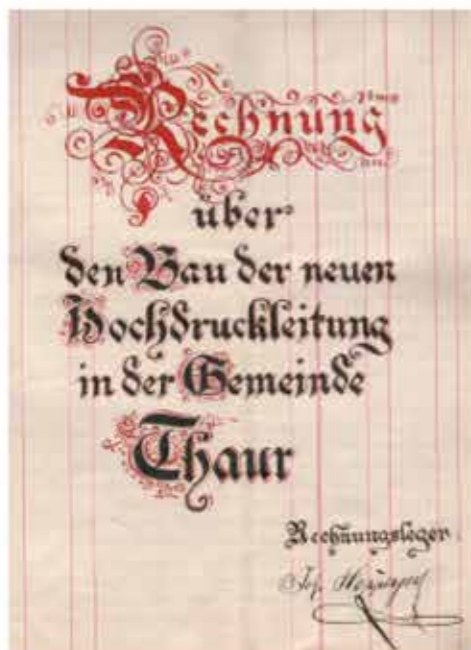 Rechnung
über
den Bau der neuen
Hochdruckleitung
in der Gemeinde
Thaur
Rechnungsleger
Jos.